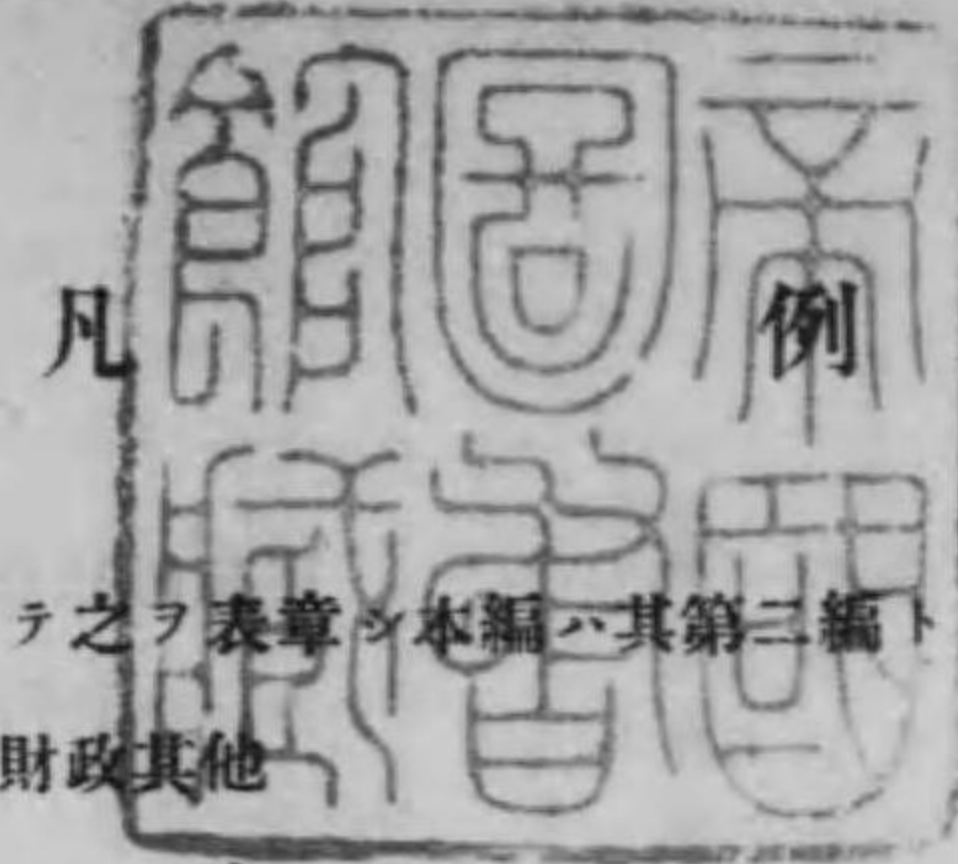 帝國
圖書
館藏
凡例
テ之ヲ表章シ本編ハ其第二編ト
財政其他